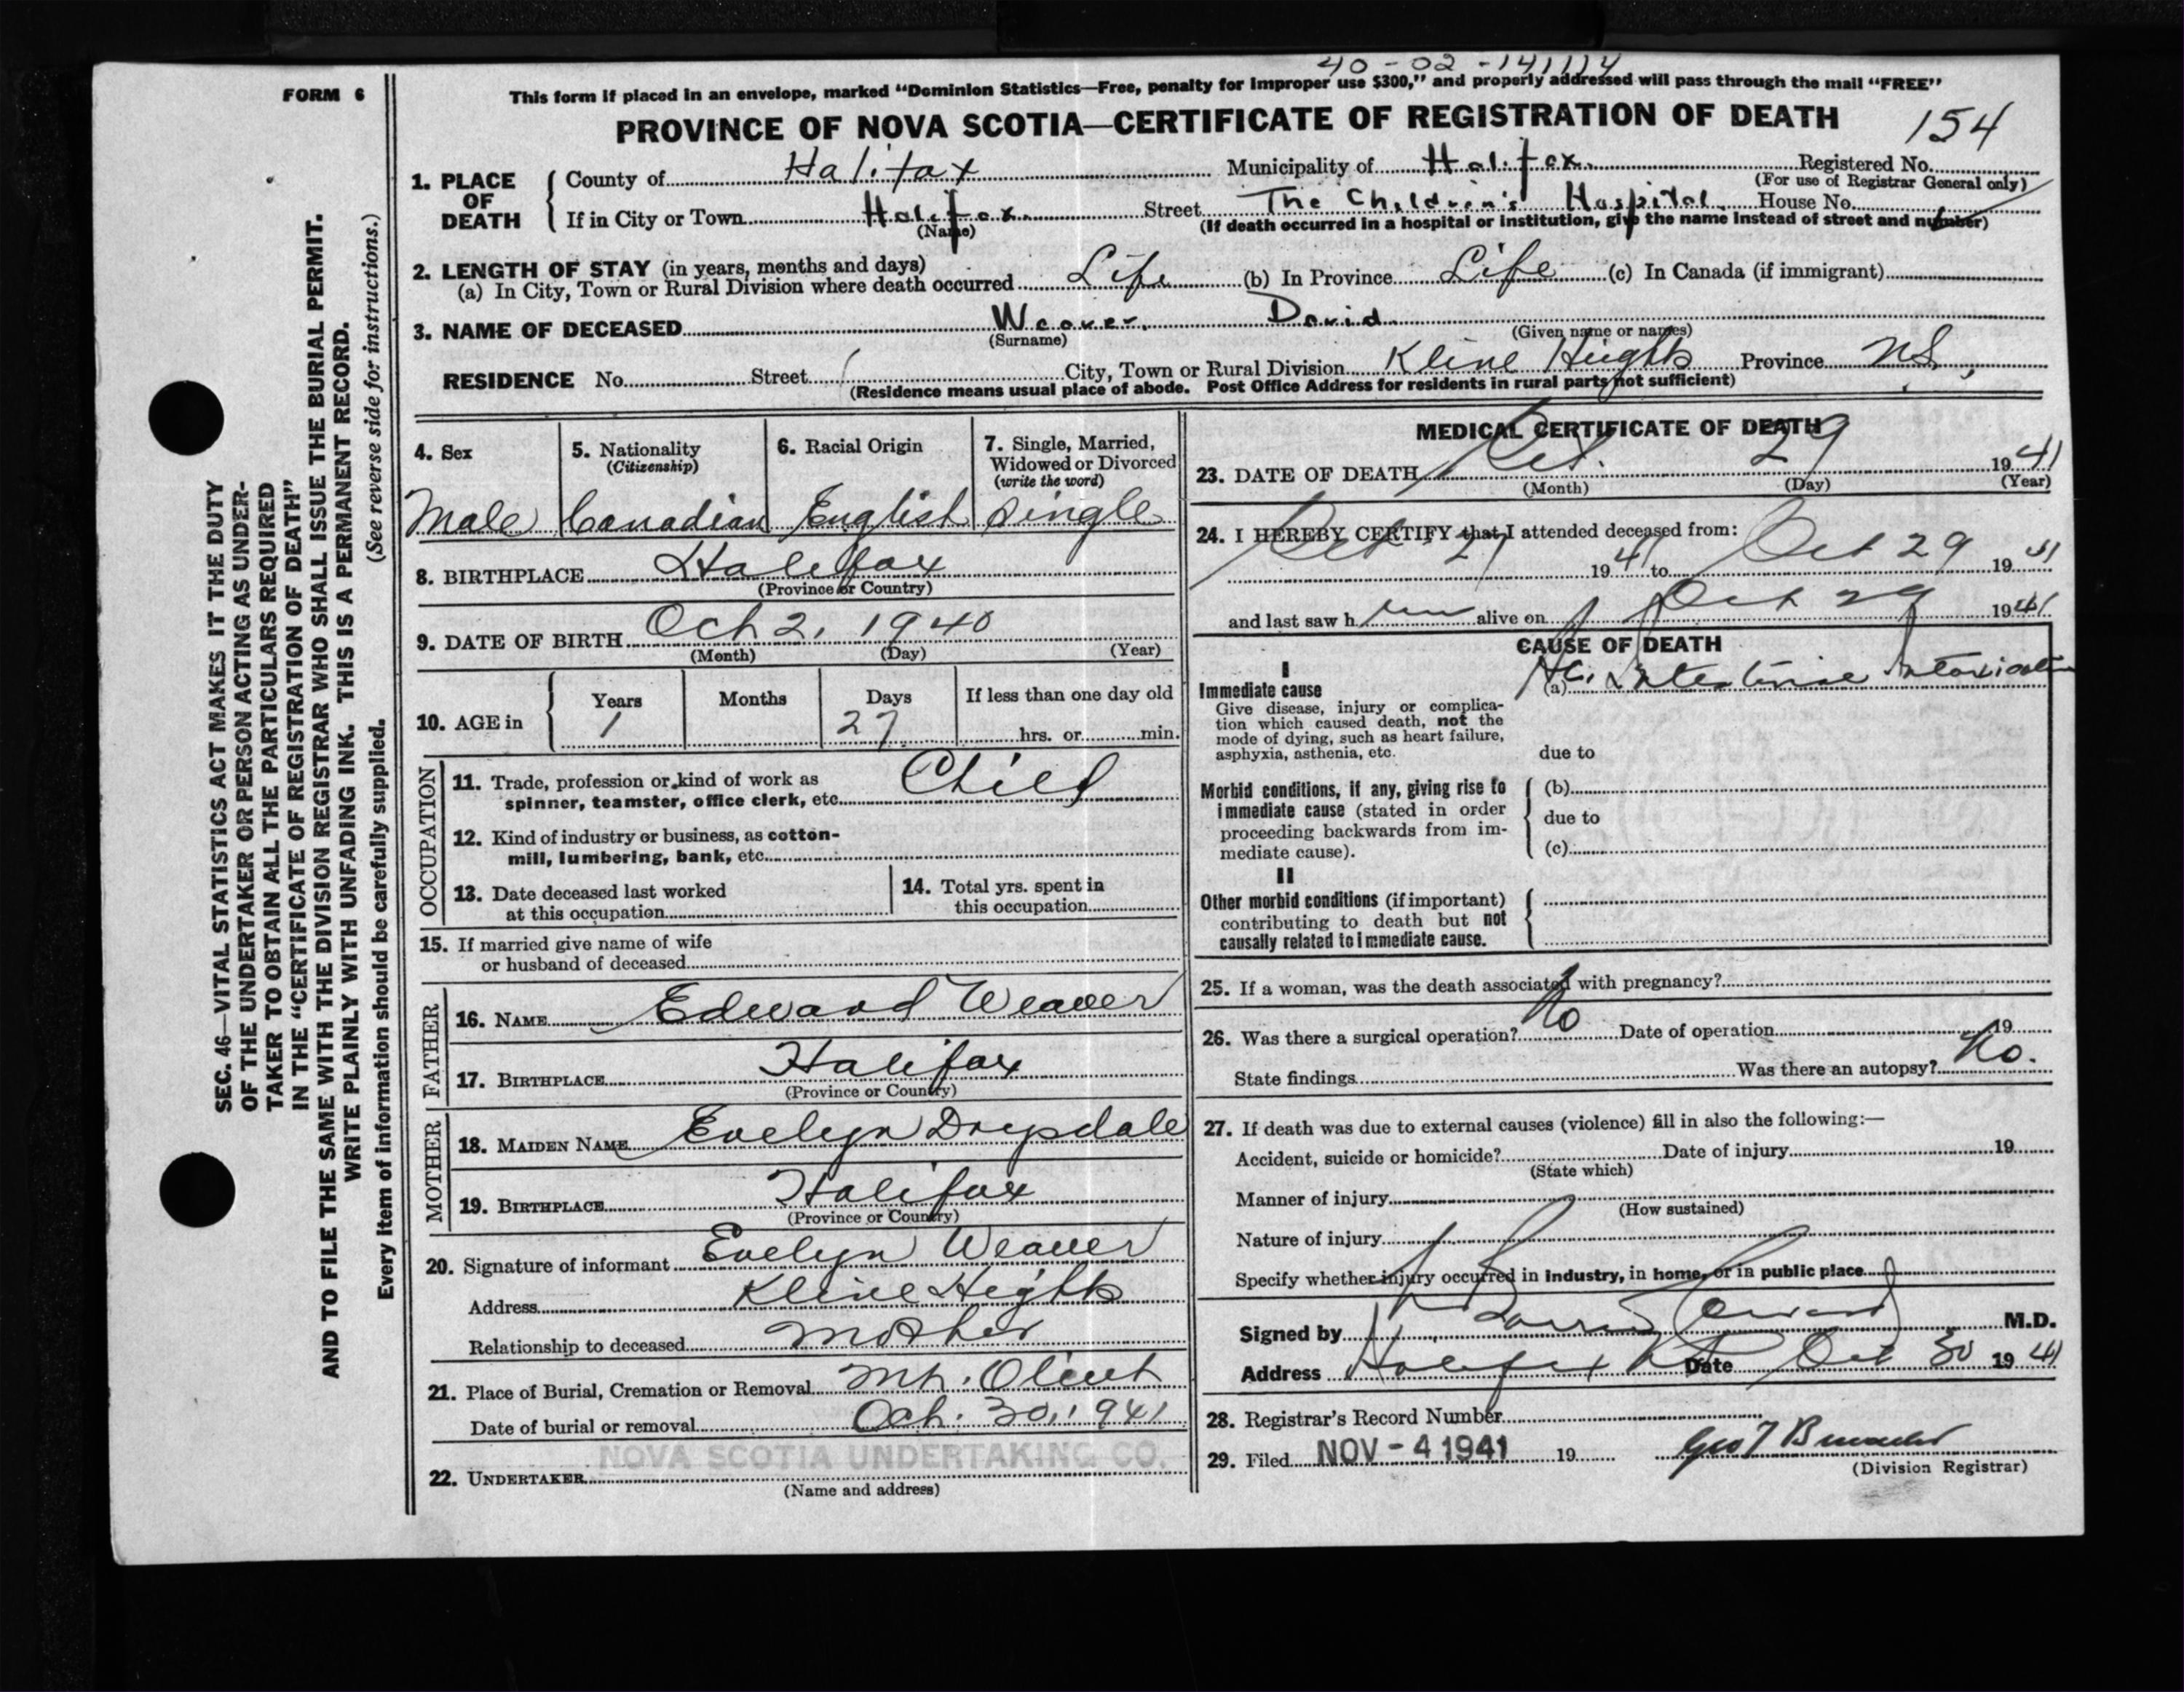 40-02-141114
FORM 6
This form if placed in an envelope, marked "Dominion Statistics—Free, penalty for improper use $300," and properly addressed will pass through the mail "FREE"
PROVINCE OF NOVA SCOTIA—CERTIFICATE OF REGISTRATION OF DEATH 154
1. PLACE OF DEATH
County of Halifax Municipality of Halifax Registered No.
(For use of Registrar General only)
If in City or Town Halifax Street The Children's Hospital House No.
(Name) (If death occurred in a hospital or institution, give the name instead of street and number)
2. LENGTH OF STAY (in years, months and days)
(a) In City, Town or Rural Division where death occurred Life (b) In Province Life (c) In Canada (if immigrant)
3. NAME OF DECEASED Weaver David
(Surname) (Given name or names)
RESIDENCE No. Street City, Town or Rural Division Kline Heights Province N.S.
(Residence means usual place of abode. Post Office Address for residents in rural parts not sufficient)
4. Sex 5. Nationality (Citizenship) 6. Racial Origin 7. Single, Married, Widowed or Divorced (write the word)
Male Canadian English Single
8. BIRTHPLACE Halifax
(Province or Country)
9. DATE OF BIRTH Oct 2, 1940
(Month) (Day) (Year)
10. AGE in Years Months Days If less than one day old
1 27 hrs. or min.
OCCUPATION
11. Trade, profession or kind of work as
spinner, teamster, office clerk, etc. Child
12. Kind of industry or business, as cotton-
mill, lumbering, bank, etc.
13. Date deceased last worked
at this occupation
14. Total yrs. spent in
this occupation
15. If married give name of wife
or husband of deceased
FATHER
16. NAME Edward Weaver
17. BIRTHPLACE Halifax
(Province or Country)
MOTHER
18. MAIDEN NAME Evelyn Drysdale
19. BIRTHPLACE Halifax
(Province or Country)
20. Signature of informant Evelyn Weaver
Address Kline Heights
Relationship to deceased Mother
21. Place of Burial, Cremation or Removal Mt. Olivet
Date of burial or removal Oct. 30, 1941
NOVA SCOTIA UNDERTAKING CO.
22. UNDERTAKER
(Name and address)
MEDICAL CERTIFICATE OF DEATH
23. DATE OF DEATH Oct. 29 1941
(Month) (Day) (Year)
24. I HEREBY CERTIFY that I attended deceased from:
Oct 27 1941 to Oct 29 1941
and last saw h im alive on Oct 29 1941
CAUSE OF DEATH
I
Immediate cause
Give disease, injury or complica-
tion which caused death, not the
mode of dying, such as heart failure,
asphyxia, asthenia, etc.
(a) Ac. Intestinal Intoxication
due to
Morbid conditions, if any, giving rise to
immediate cause (stated in order
proceeding backwards from im-
mediate cause).
(b)
due to
(c)
II
Other morbid conditions (if important)
contributing to death but not
causally related to immediate cause.
25. If a woman, was the death associated with pregnancy?
26. Was there a surgical operation? No Date of operation 19
State findings Was there an autopsy? No.
27. If death was due to external causes (violence) fill in also the following:—
Accident, suicide or homicide? Date of injury 19
(State which)
Manner of injury
(How sustained)
Nature of injury
Specify whether injury occurred in industry, in home, or in public place
Signed by M.D.
Address Halifax NS Date Oct 30 1941
28. Registrar's Record Number
29. Filed NOV - 4 1941 19 Geo T
(Division Registrar)
SEC. 46—VITAL STATISTICS ACT MAKES IT THE DUTY
OF THE UNDERTAKER OR PERSON ACTING AS UNDER-
TAKER TO OBTAIN ALL THE PARTICULARS REQUIRED
IN THE "CERTIFICATE OF REGISTRATION OF DEATH"
AND TO FILE THE SAME WITH THE DIVISION REGISTRAR WHO SHALL ISSUE THE BURIAL PERMIT.
WRITE PLAINLY WITH UNFADING INK. THIS IS A PERMANENT RECORD.
Every item of information should be carefully supplied. (See reverse side for instructions.)